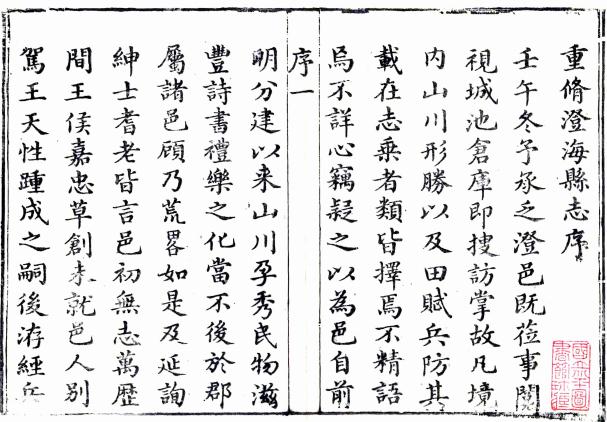 重脩澄海縣志序
壬午冬予承乏澄邑既蒞事閱
視城池倉庫即搜訪掌故凡境
内山川形勝以及田賦兵防其
載在志乗者類皆擇焉不精語
焉不詳心竊疑之以為邑自前
序一
明分建以来山川孕秀民物滋
豐詩書禮樂之化當不後於郡
屬諸邑顧乃荒畧如是及延詢
紳士耆老皆言邑初無志萬歴
間王侯嘉忠草創未就邑人別
駕王天性踵成之嗣後洊經兵